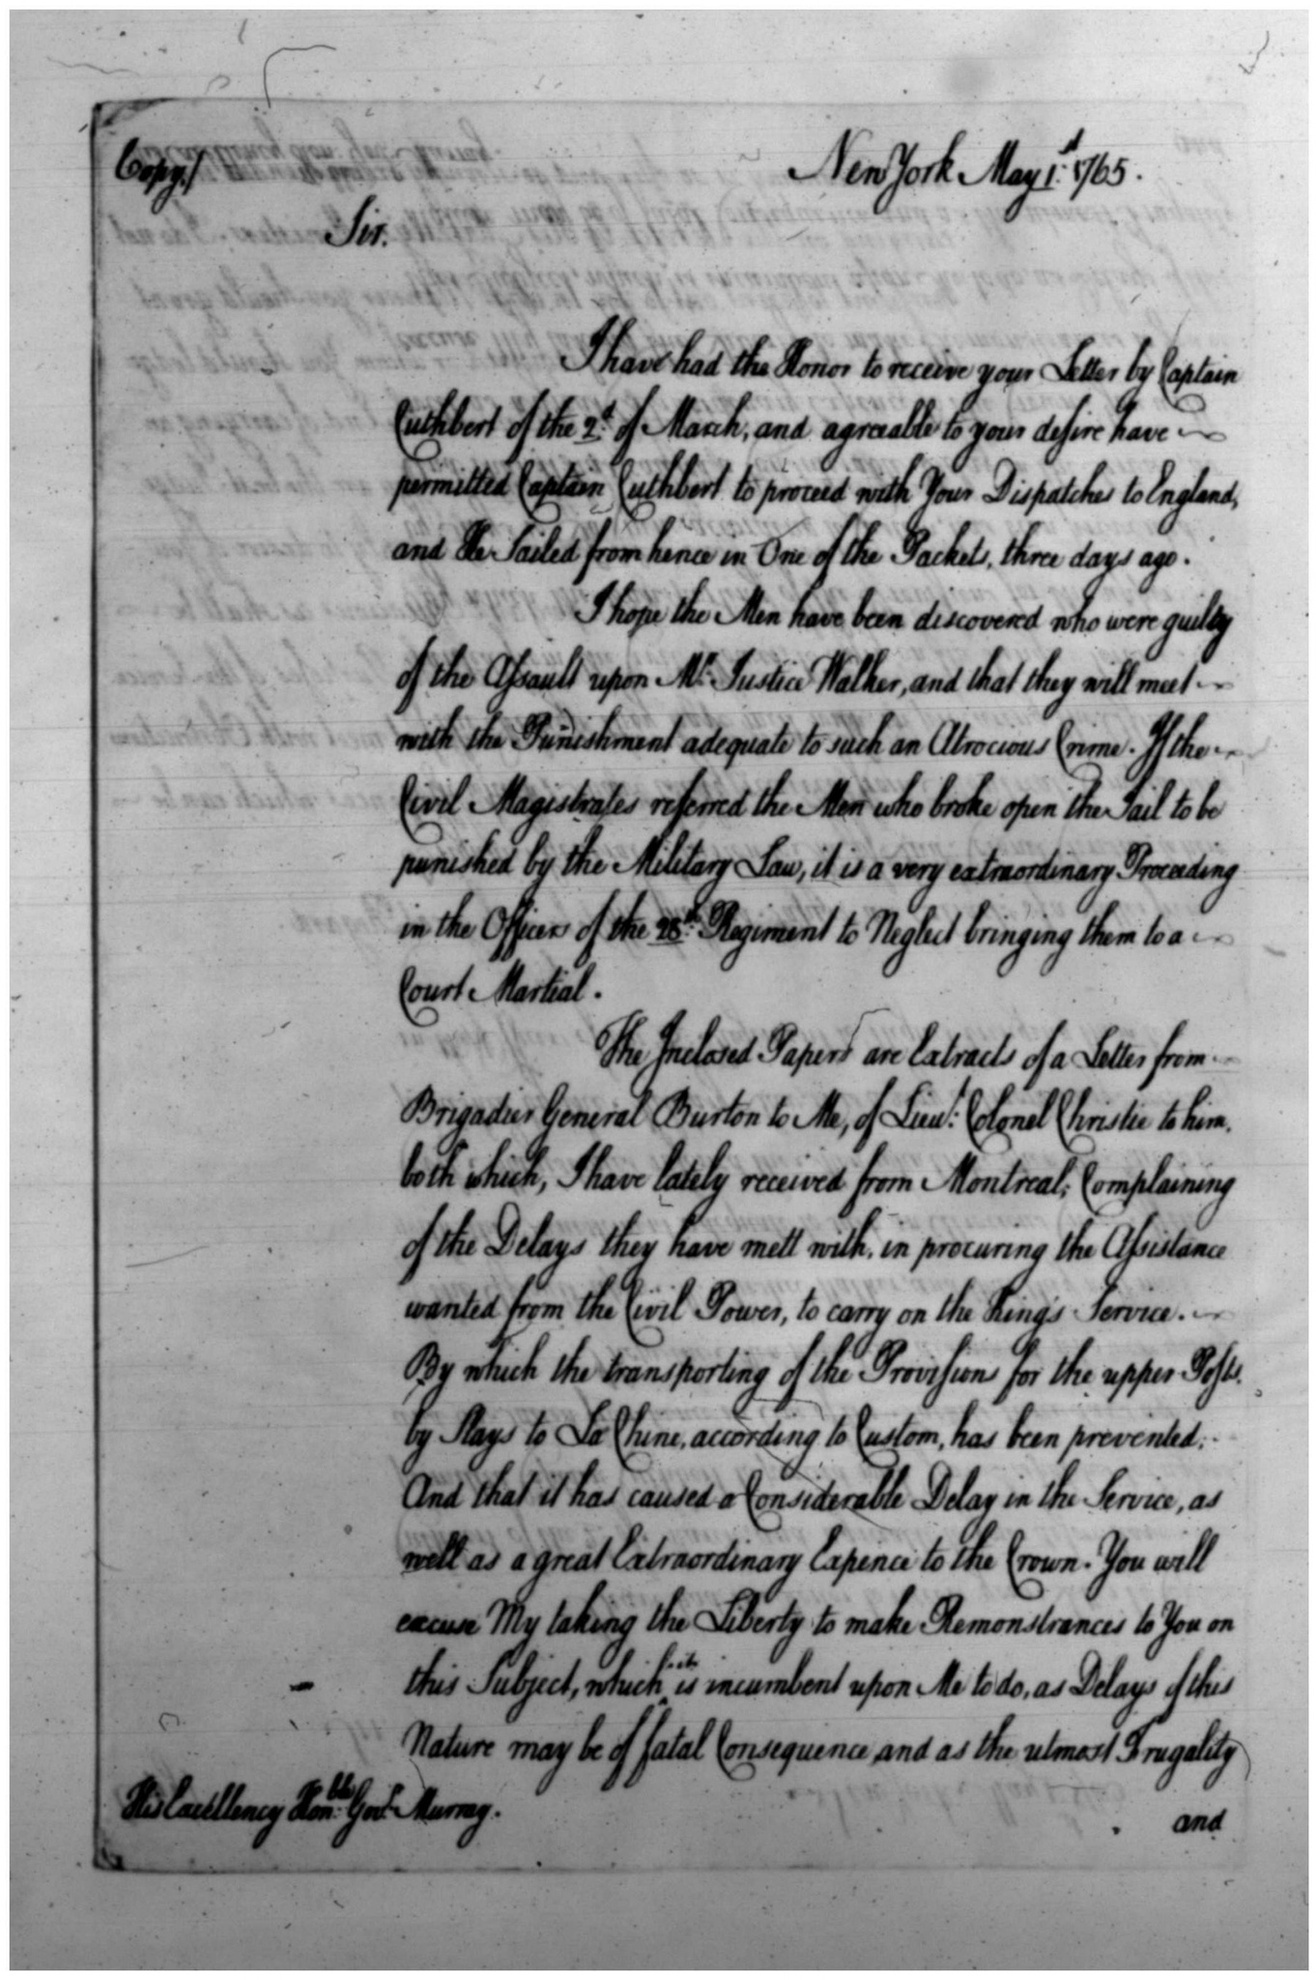 Copy./
New York May 1.st 1765.
Sir.
I have had the Honor to receive your Letter by Captain
Cuthbert of the 2d. of March, and agreeable to your desire have
permitted Captain Cuthbert to proceed with Your Dispatches to England,
and He Sailed from hence in One of the Packets, three days ago.
I hope the Men have been discovered who were guilty
of the Assault upon Mr. Justice Walker, and that they will meet
with the Punishment adequate to such an Atrocious Crime. If the
Civil Magistrates referred the Men who broke open the Jail to be
punished by the Military Law, it is a very extraordinary Proceeding
in the Officers of the 28th. Regiment to Neglect bringing them to a
Court Martial.
The Inclosed Papers are Extracts of a Letter from
Brigadier General Burton to Me, of Lieut: Colonel Christie to him,
both which, I have lately received from Montreal; Complaining
of the Delays they have mett with, in procuring the Assistance
wanted from the Civil Power, to carry on the King's Service.
By which the transporting of the Provisions for the upper Posts,
by Slays to La Chine, according to Custom, has been prevented;
And that it has caused a Considerable Delay in the Service, as
well as a great Extraordinary Expence to the Crown. You will
excuse My taking the Liberty to make Remonstrances to You on
this Subject, which it is incumbent upon Me to do, as Delays of this
Nature may be of fatal Consequence and as the utmost Frugality
His Excellency Honble. Govr. Murray.
and